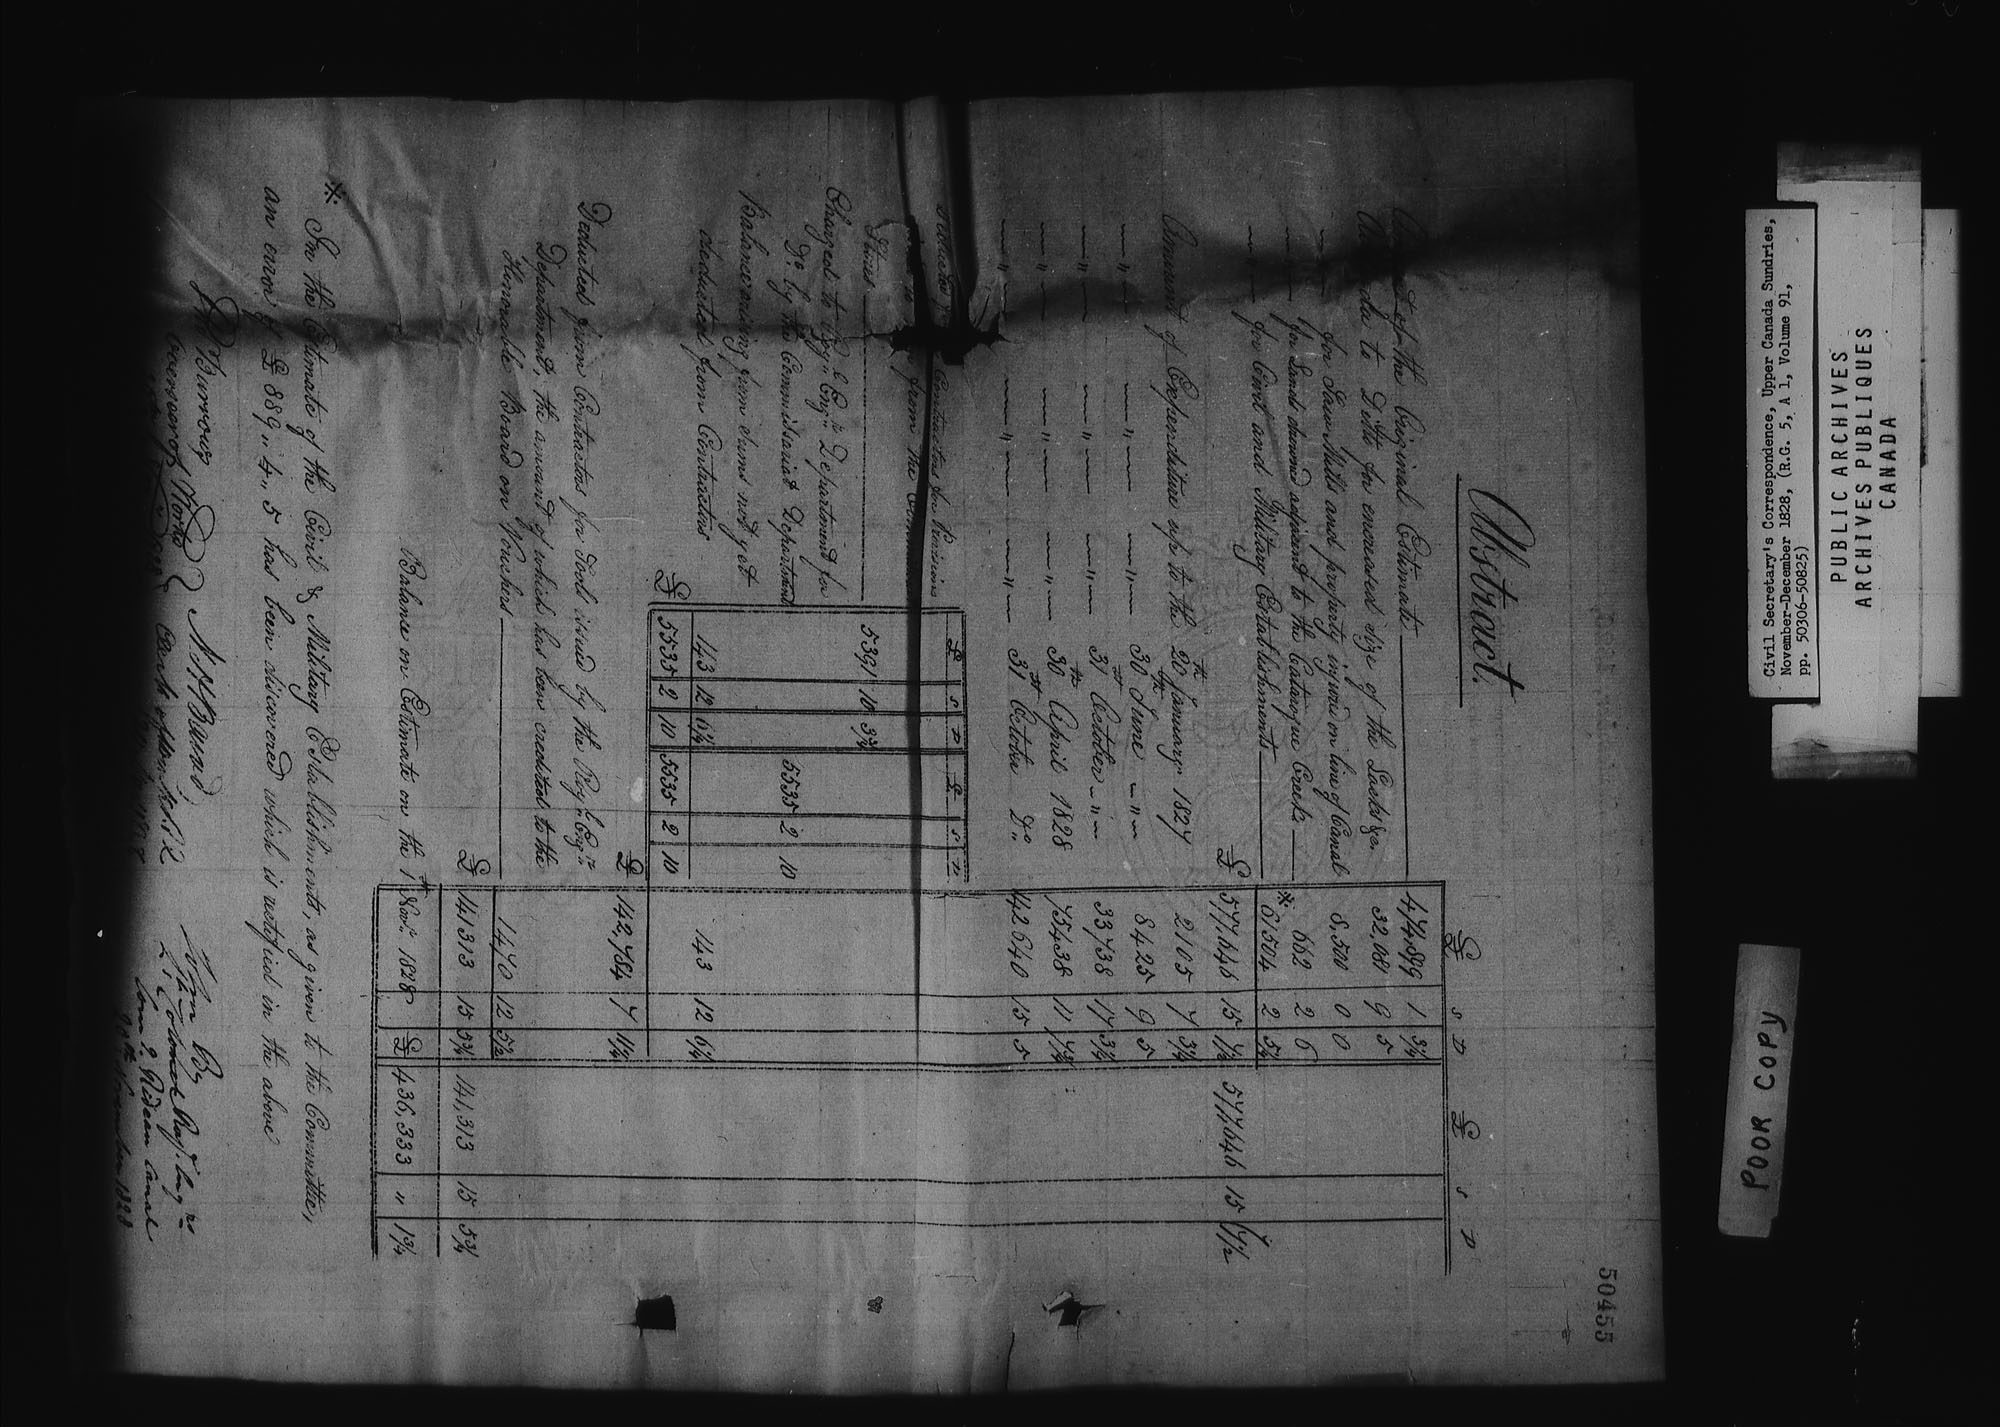 50455
Abstract.
£ s D £ s D
of the Original Estimate 474,899 1 3¼
to Ditto for encreased size of the Locks &c. 32,081 9 5
for Saw Mills and property injured on line of Canal 8,500 0 0
for Lands drowned adjacent to the Cataroque Creek 662 2 6
for Civil and Military Establishments ※ 61504 2 5¼
£ 577,646 15 7½ 577646 15 7½
Amount of Expenditure up to the 20th January 1827 2105 7 3¼
" " " 30th June " 8425 9 5
" " " 31st October " 33738 17 3¼
" " " 30th April 1828 75438 11 7¾
" " " 31st October Do 42640 15 5
£ s D £ s D
Contractors for Provisions
from the
Stores 5391 10 3¾
Charged to Roy'l Eng'rs Department for
Do by the Commissariat Department 5535 2 10
Balance arising from sums not yet
deducted from Contractors 143 12 6¼ 143 12 6¼
£ 5535 2 10 5535 2 10
£ 142,784 7 11¼
Deducted from Contractors for Tools issued by the Roy'l Eng'r
Department, the amount of which has been credited to the
Honorable Board on Vouchers 1470 12 5½
£ 141313 15 5¾ 141,313 15 5¾
Balance on Estimate on the 1st Nov'r 1828 £ 436,333 " 1¾
※ In the Estimate of the Civil & Military Establishments, as given to the Committee,
an error of £ 889 " 4 " 5 has been discovered which is rectified in the above
J Burrows
Overseer of Works
N H Baird
Clerk of Works
John By
Lt Colonel Roy'l Eng'rs
Com'g Rideau Canal
November 1828
Civil Secretary's Correspondence, Upper Canada Sundries,
November-December 1828, (R.G. 5, A 1, Volume 91,
pp. 50306-50825)
PUBLIC ARCHIVES
ARCHIVES PUBLIQUES
CANADA
POOR COPY